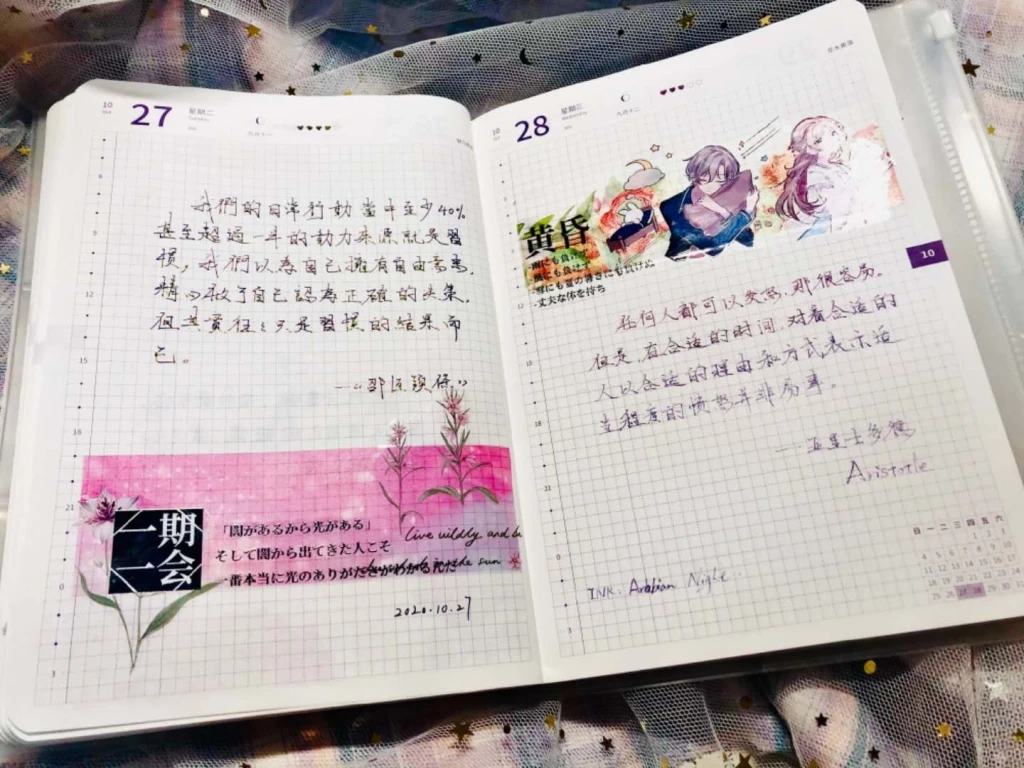 10
Oct
27
星期二
Tuesday
九月十一
我們的日常行動當中至少40%
甚至超過一半的動力來源就是習
慣，我們以為自己擁有自由意志，
做了自己認為正確的決策，
但其實往往只是習慣的結果而
已。
一期
一会
「闇があるから光がある」
そして闇から出てきた人こそ
一番本当に光のありがたさがわかる人だ
live wildly and
the sun
2020.10.27
10
28
星期三
Wednesday
九月十二
黄昏
雨にも負けず
風にも負けず
雪にも夏の暑さにも負けぬ
丈夫な体を持ち
10
任何人都可以发怒，那很容易。
但是，在合适的时间，对着合适的
人以合适的理由和方式表示适
当程度的愤怒并非易事。
——亚里士多德
Aristotle
INK: Arabian Night
日一二三四五六